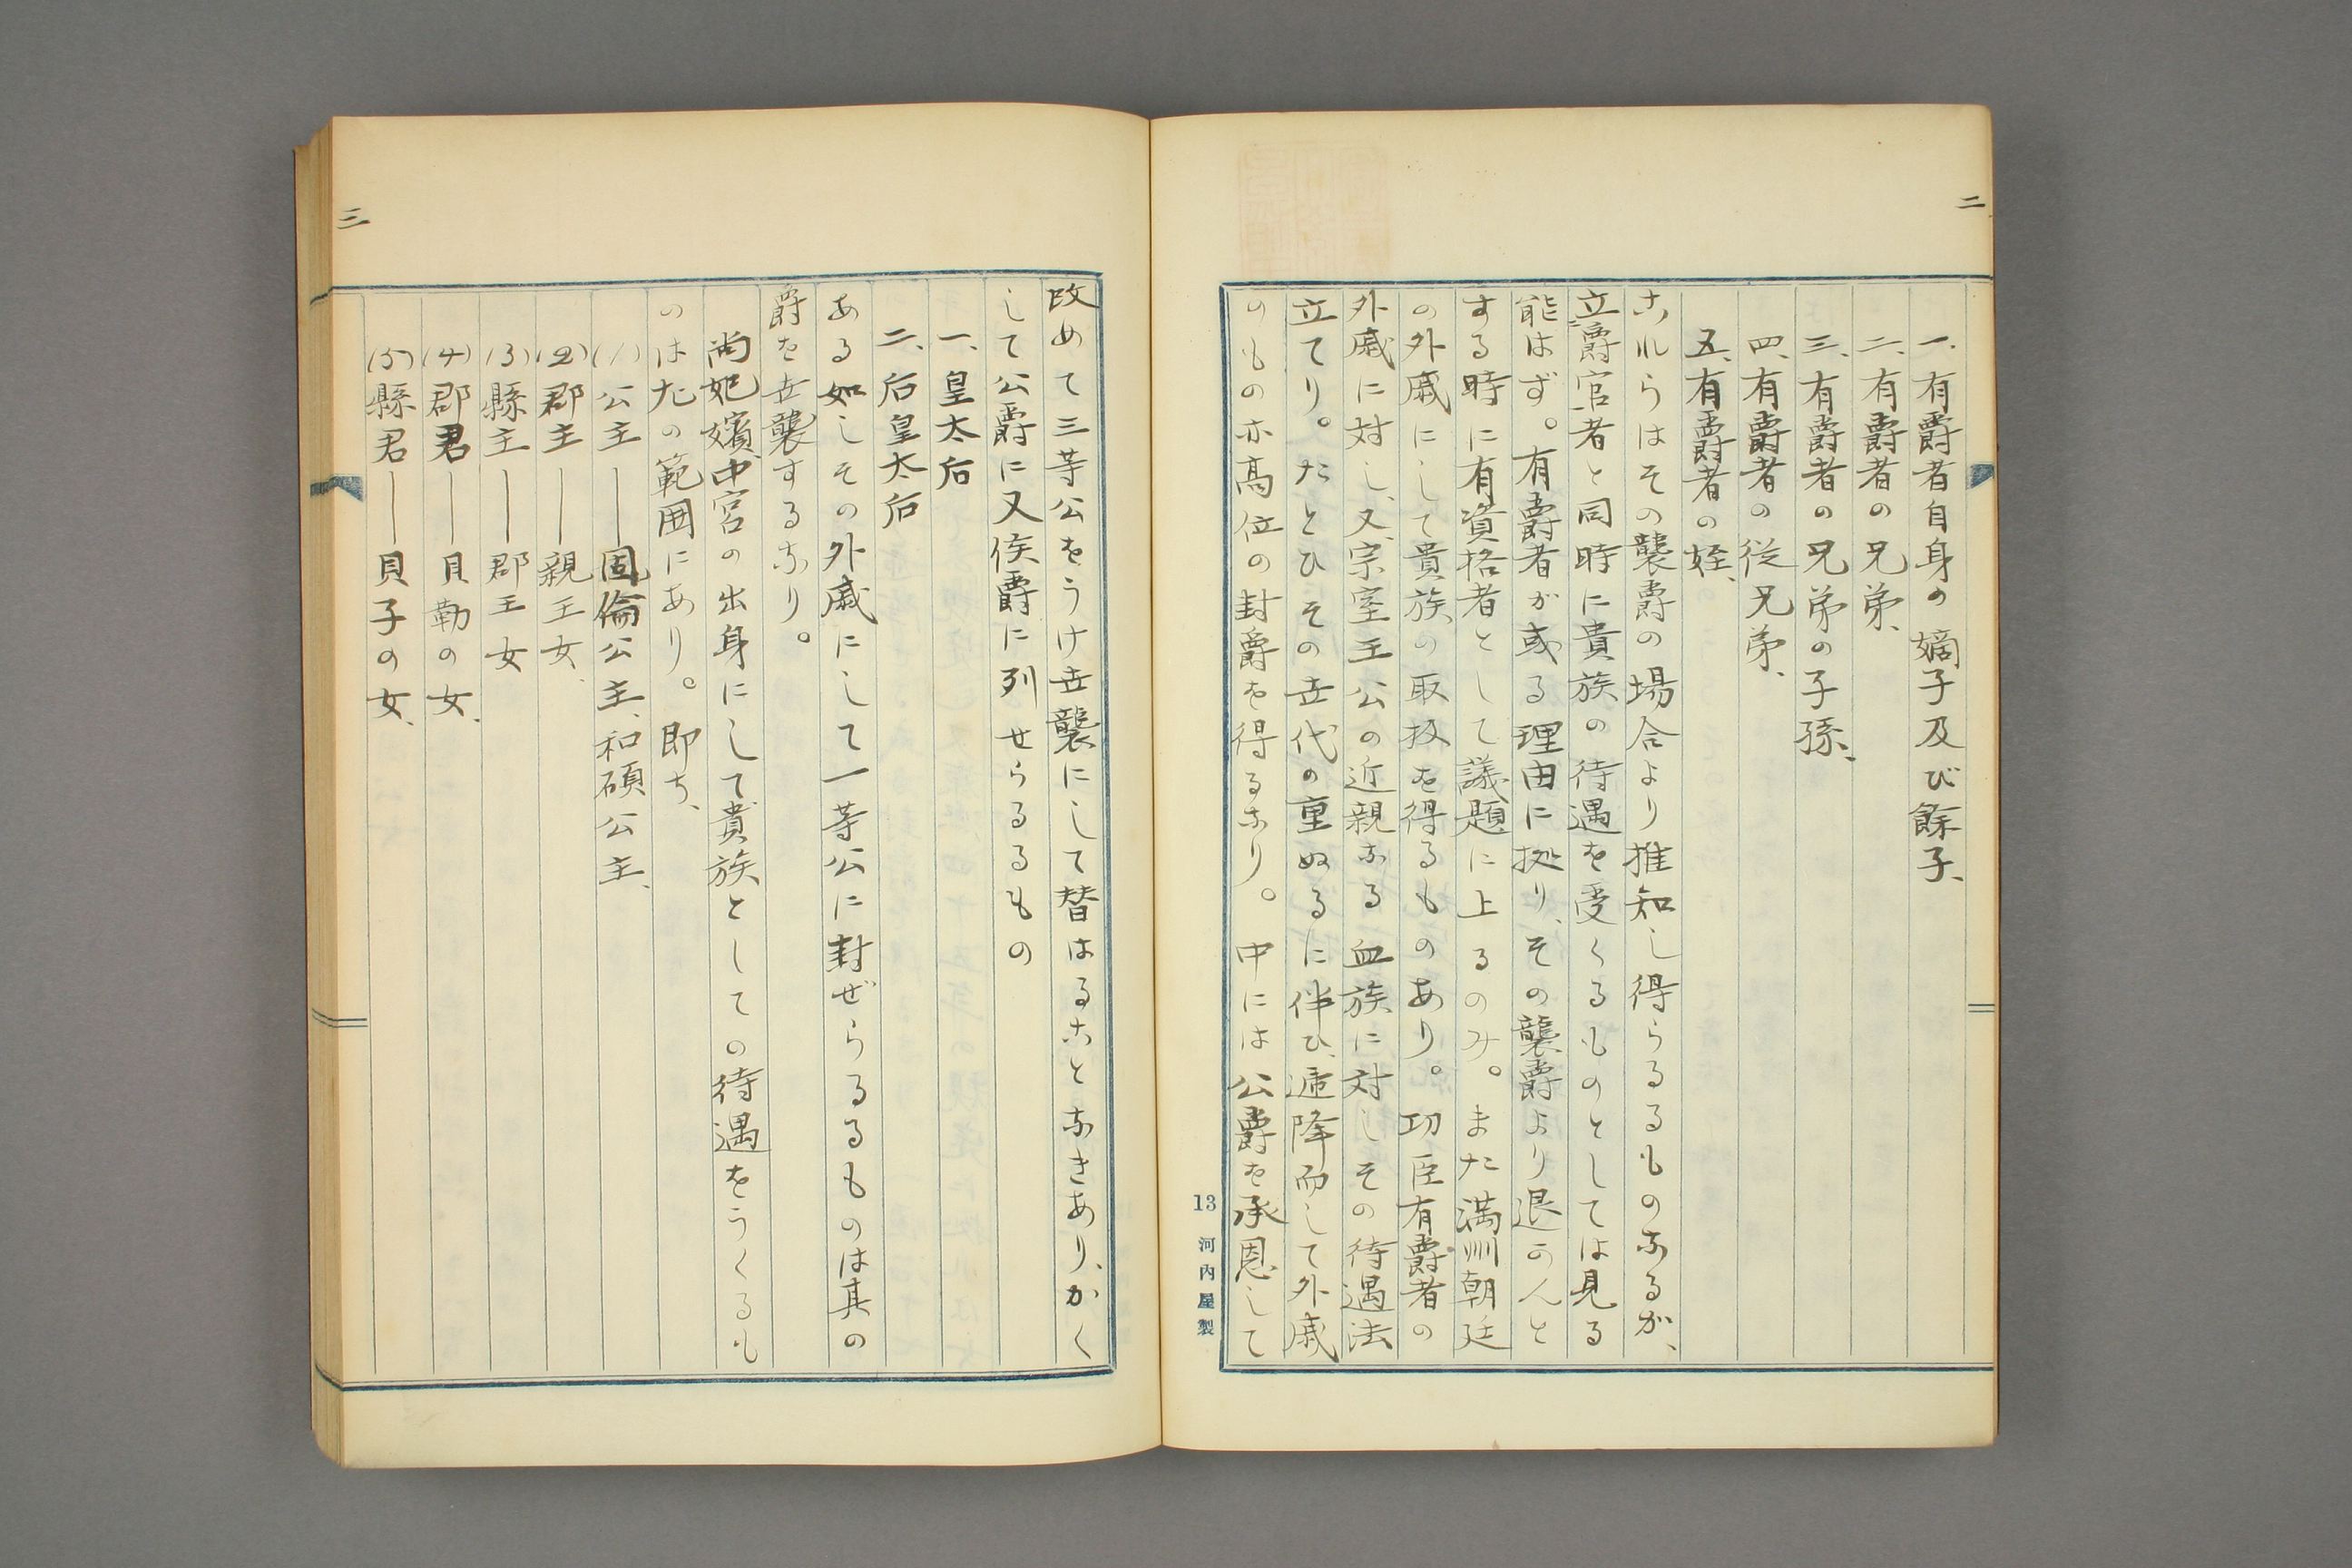 二
一、有爵者自身の嫡子及び餘子、
二、有爵者の兄弟、
三、有爵者の兄弟の子孫、
四、有爵者の従兄弟、
五、有爵者の姪、
これらはその襲爵の場合より推知し得らるるものなるが、
立爵官者と同時に貴族の待遇を受くるものとしては見る
能はず。有爵者が或る理由に拠り、その襲爵より退かんと
する時に有資格者として議題に上るのみ。また満洲朝廷
の外戚にして貴族の取扱を得るものあり。功臣有爵者の
外戚に対し、又、宗室王公の近親なる血族に対しその待遇法
立てり。たとひその世代の重ぬるに伴ひ、逓降而して外戚
のもの亦高位の封爵を得るなり。中には公爵を承恩して
13 河内屋製
三
改めて三等公をうけ世襲にして替はることなきあり、かく
して公爵に又侯爵に列せらるるもの
一、皇太后
二、后皇太后
ある如しその外戚にして一等公に封ぜらるるものは其の
爵を世襲するなり。
尚妃嬪、中宮の出身にして貴族としての待遇をうくるも
のは尤の範囲にあり。即ち、
(1)公主——固倫公主、和碩公主、
(2)郡主——親王女、
(3)縣主——郡王女
(4)郡君——貝勒の女、
(5)縣君——貝子の女、